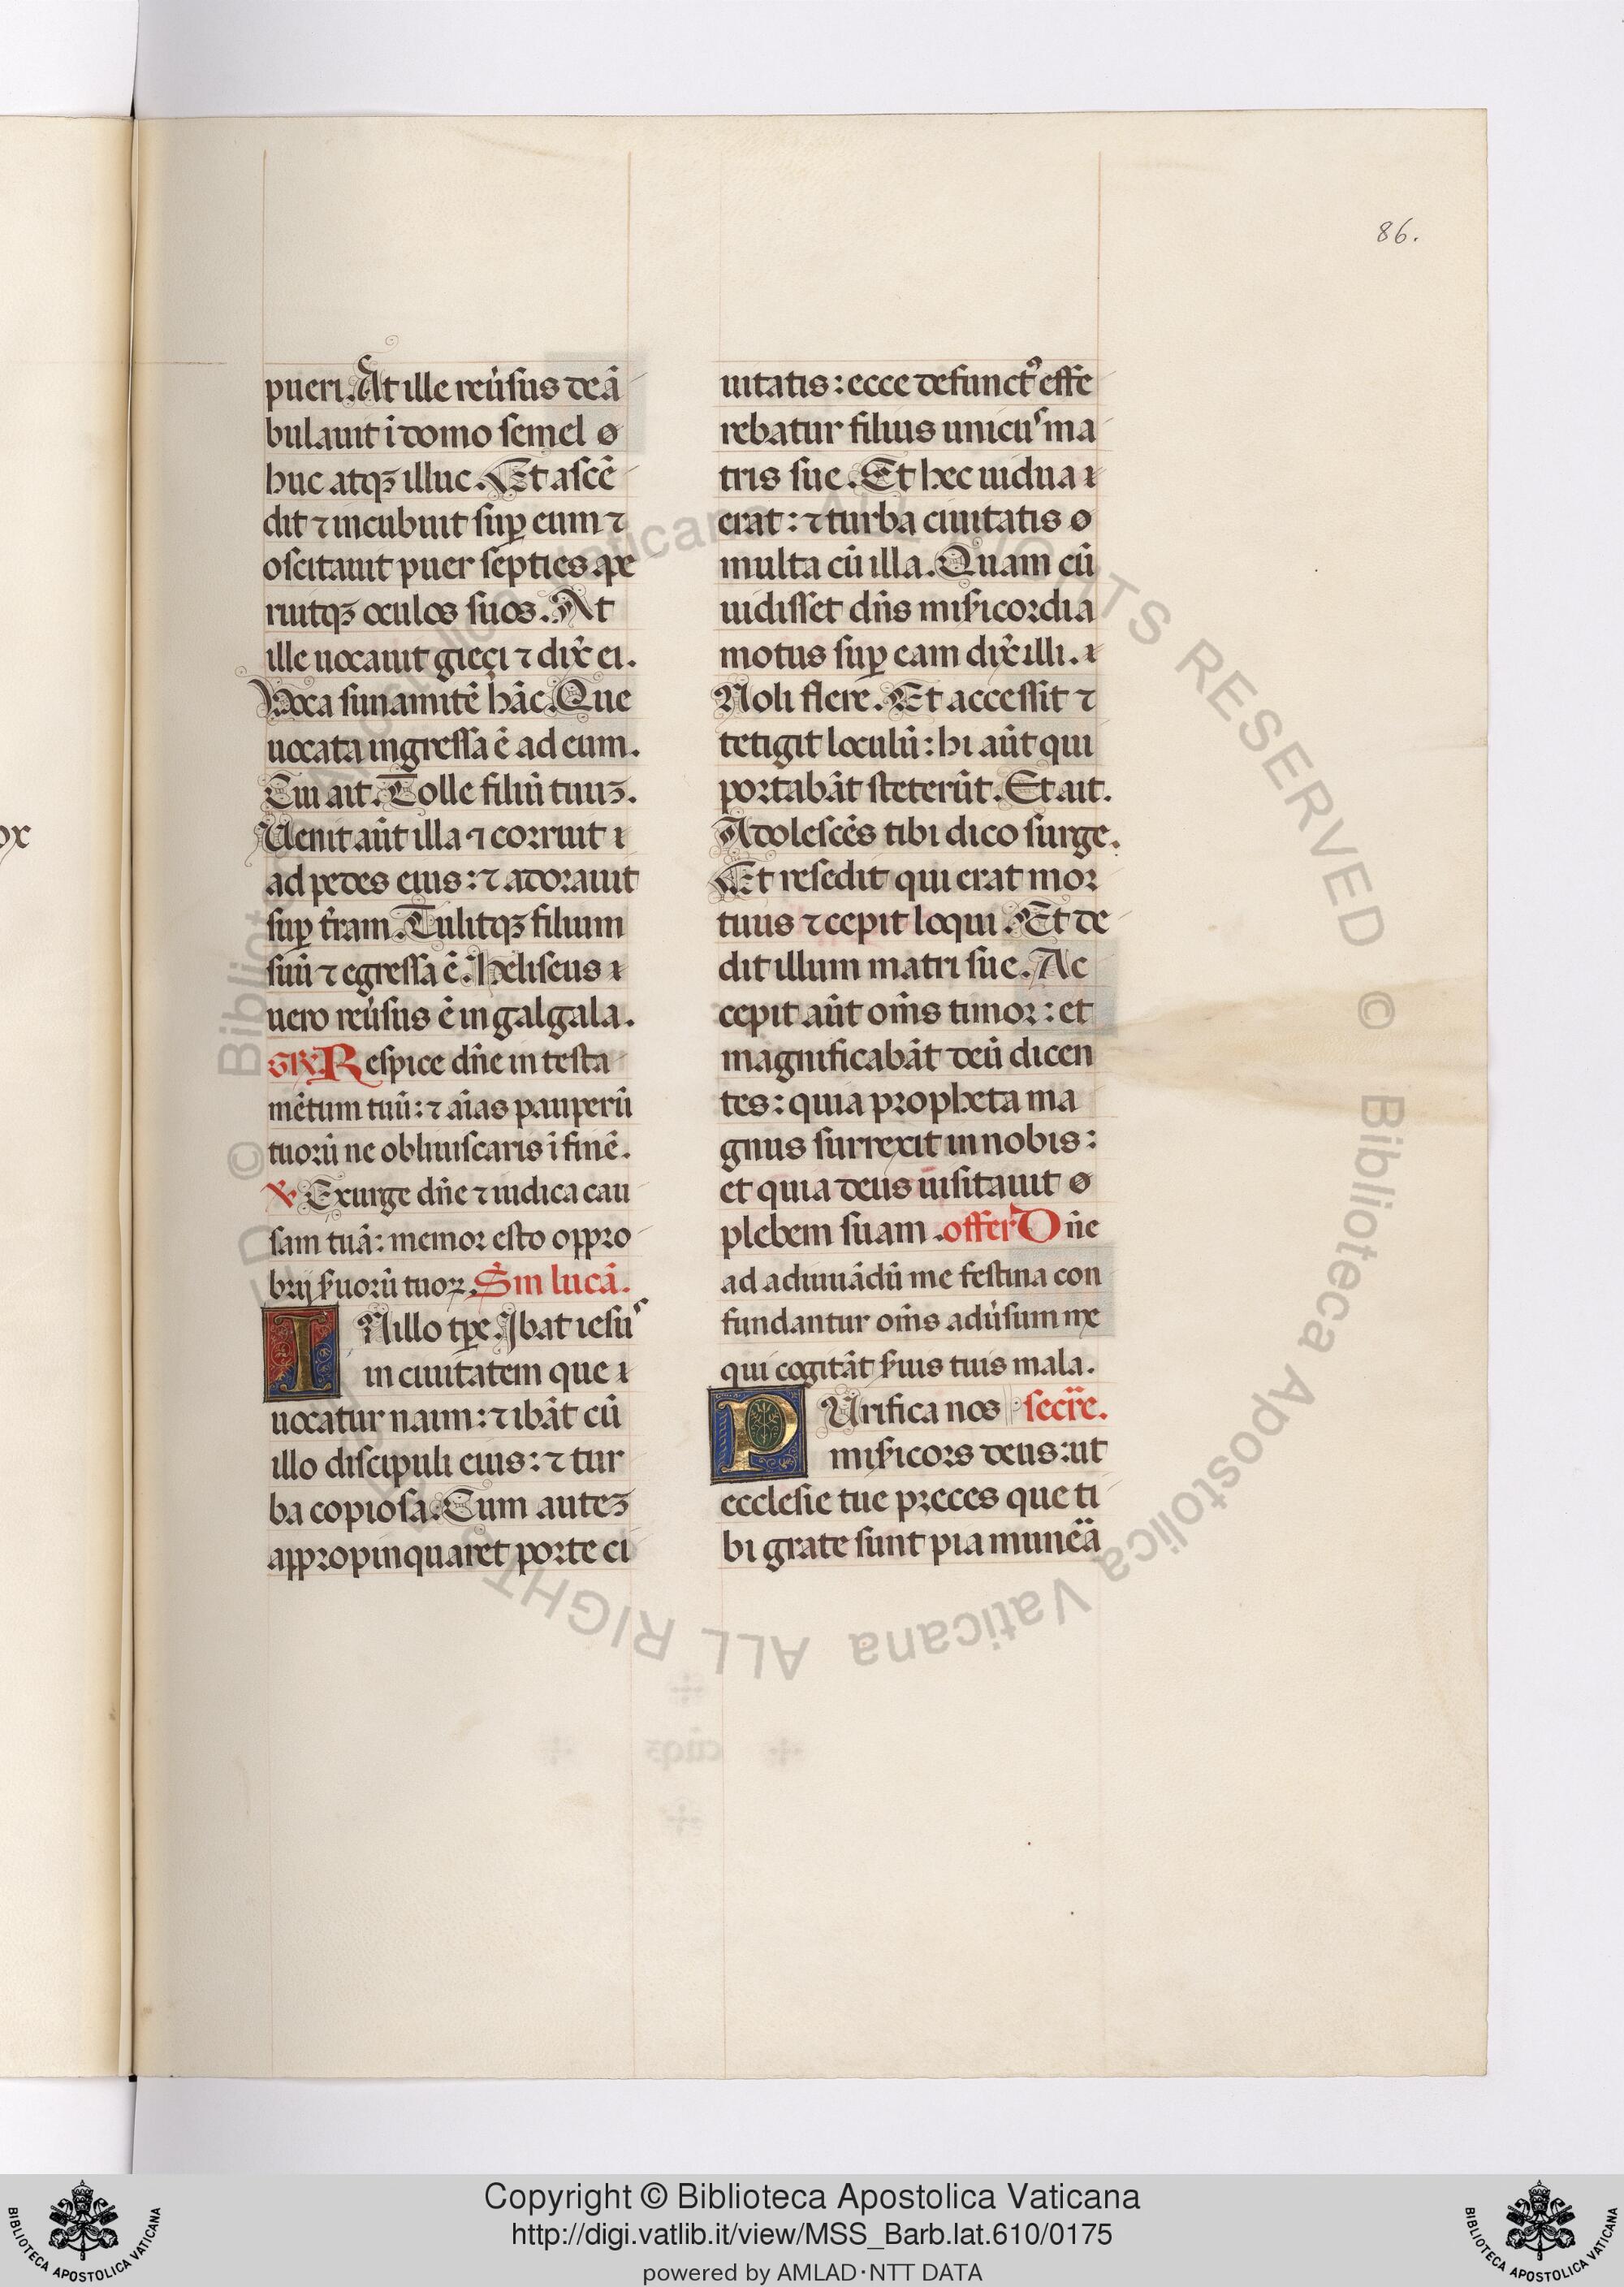 86.
pueri. At ille reu᷑sus deā
bulauit ī domo semel ø
huc atqꝫ illuc. Et ascē
dit ⁊ incubuit suꝑ eum ⁊
oscitauit puer septies aꝑe
ruitqꝫ oculos suos. At
ille uocauit gieçi ⁊ dix̄ ei.
Uoca sunamitē hāc. Que
uocata ingressa ē ad eum.
Cui ait. Tolle filiū tuuꝫ.
Uenit aūt illa ⁊ corruit ı
ad pedes eius: ⁊ adorauit
suꝑ t̄ram. Tulitqꝫ filium
suū ⁊ egressa ē. Heliseus ı
uero reu᷑sus ē in galgala.
GR̄ Respice dn̄e in testa
mētum tuū: ⁊ aīas pauperū
tuorū ne obliuiscaris ī finē.
℣ Exurge dn̄e ⁊ iudica cau
sam tuā: memor esto oppro
brij s̄uorū tuoꝝ. S̄m lucā.
IN illo tꝑe. Ibat iesuˢ
in ciuitatem que ı
uocatur naim: ⁊ ibāt cū
illo discipuli eius: ⁊ tur
ba copiosa. Cum auteꝫ
appropinquaret porte ci
uitatis: ecce defunctꝰ effe
rebatur filius unicuˢ ma
tris sue. Et hec uidua ı
erat: ⁊ turba ciuitatis ø
multa cū illa. Quam cū
uidisset dn̄s mis̄icordia
motus suꝑ eam dix̄ illi. ı
Noli flere. Et accessit ⁊
tetigit loculū: hi aūt qui
portabāt steterūt. Et ait.
Adolescēs tibi dico surge.
Et resedit qui erat mor
tuus ⁊ cepit loqui. Et de
dit illum matri sue. Ac
cepit aūt om̄s timor: et
magnificabāt deū dicen
tes: quia propheta ma
gnus surrexit in nobis:
et quia deus uisitauit ø
plebem suam. offer̄ Dn̄e
ad adiuuādū me festina con
fundantur om̄s adu᷑sum me
qui cogitāt s̄uis tuis mala.
PUrifica nos secr̄e.
mis̄icors deus: ut
ecclesie tue preces que ti
bi grate sunt pia munēa
© Biblioteca Apostolica Vaticana ALL RIGHTS RESERVED
Copyright © Biblioteca Apostolica Vaticana
http://digi.vatlib.it/view/MSS_Barb.lat.610/0175
powered by AMLAD·NTT DATA
BIBLIOTECA APOSTOLICA VATICANA
BIBLIOTECA APOSTOLICA VATICANA